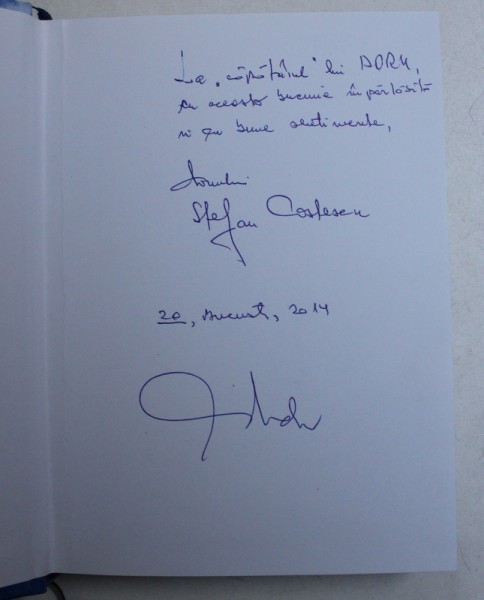 La „căpătâiul” lui DORU,
cu această bucurie împărtăsită
si cu bune sentimente,
Domnului
Stefan Costescu
20, Bucuresti, 2014